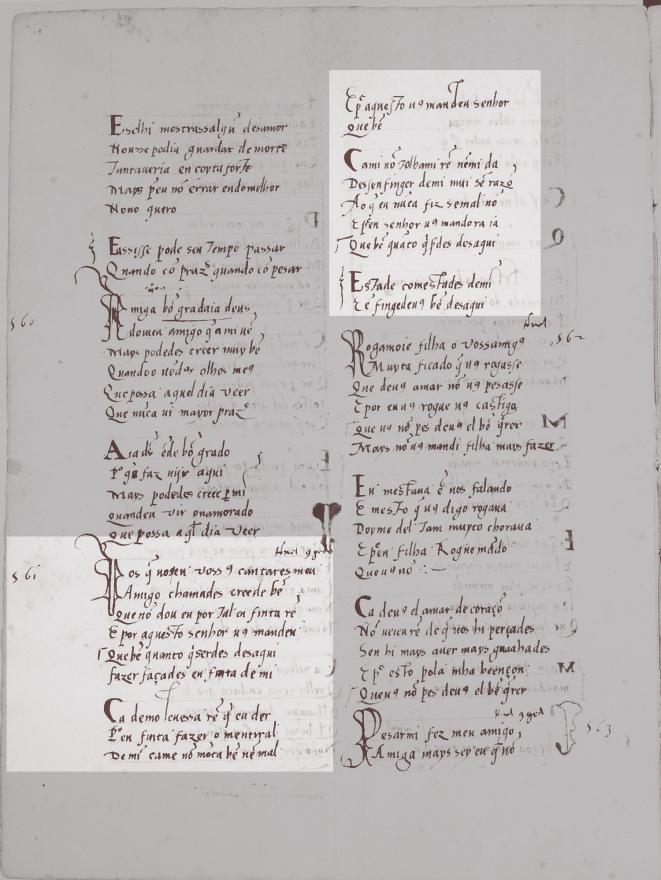 E selhi mostrassalgũ desamor
Non xe podia guardar de morte
Tantaueria en coyta forte
Mays peu nõ errar endo melhor
Nono quero
E assisse pode seu tempo passar
Quando cõ praz quando cõ pesar
560
Amiga bõ grad aia deus
do meu amigo q a mi uẽ
Mays podedes creer muy bẽ
Quando o uẽdes olhos meg
Que possa aquel dia veer
Que nũca ui mayor praz
Aia ds ẽde bõ grado
Po q̃ o faz uijr aqui
Mays podedes creer p mi
Quand eu vir o namorado
Que possa aql dia veer
561
Pos q̃ uossos cantares meu
Amigo chamades creede bẽ
Que nõ dou eu por tal finta rẽ
E por aquesto senhor u9 mandeu
Que bẽ quanto q̃serdes desaqui
Fazer façades enfinta de mi
Ca demo leuessa rẽ q̃ eu der
Por en finta fazer o mentiral
De mi ca me nõ mõta bẽ nẽ mal
E por aquesto u9 mandeu senhor
Que bẽ
Ca mi nõ tolh a mi rẽ nẽ mi da
Dess enfinger de mi mui sẽ razõ
Ao q̃ eu nũca fiz se mal nõ
E por en senhor u9 mandora ia
Que bẽ quãto q̃s des desaqui
Estade com estades de mi
E ẽfingedeu9 bẽ desaqui
562
Rogamoie filha o voss amigo
Muyt aficado q̃ u9 rogasse
Que deu9 amar nõ u9 pesasse
E por en u9 rogue u9 castigo
Que u9 nõ pes deu9 el bẽ q̃rer
Mays nõ u9 mandi filha mays fazer
Eu mestaua ẽ uos falando
E mesto q̃ u9 digo rogaua
Doyme del tam muyto choraua
E por en filha rogue mãdo
Que u9 nõ
Ca deu9 el amar de coraçõ
Nõ ueiu rẽ de q̃ uos hi perçades
Sen hi mays auer mays guaahades
E por esto pola mha beençon
Que u9 nõ pes deu9 el bẽ q̃rer
563
Pesar mi fez meu amigo
Amiga mays sey eu q̃ nõ